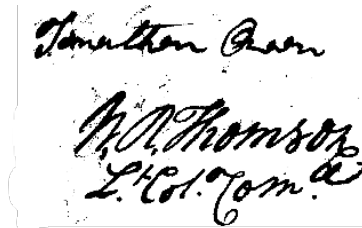 Jonathan Owen
W. R. Thomson
Lt. Col. Comd.